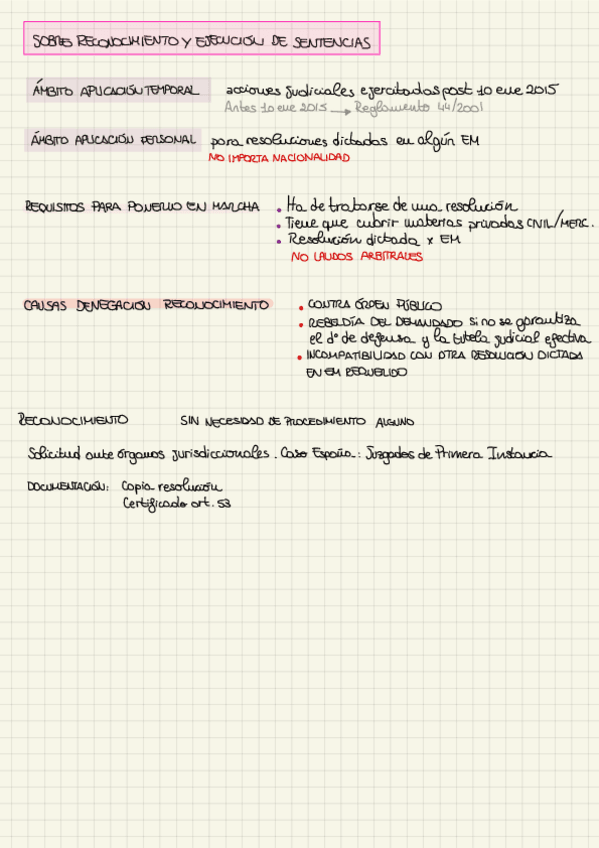 SOBRE RECONOCIMIENTO Y EJECUCIÓN DE SENTENCIAS
ÁMBITO APLICACIÓN TEMPORAL acciones judiciales ejercitadas post 10 ene 2015
Antes 10 ene 2015 → Reglamento 44/2001
ÁMBITO APLICACIÓN PERSONAL para resoluciones dictadas en algún EM
NO IMPORTA NACIONALIDAD
REQUISITOS PARA PONERLO EN MARCHA • Ha de tratarse de una resolución
• Tiene que cubrir materias privadas CIVIL/MERC.
• Resolución dictada x EM
NO LAUDOS ARBITRALES
CAUSAS DENEGACIÓN RECONOCIMIENTO • CONTRA ÓRDEN PÚBLICO
• REBELDÍA DEL DEMANDADO si no se garantiza
el dº de defensa y la tutela judicial efectiva
• INCOMPATIBILIDAD CON OTRA RESOLUCIÓN DICTADA
EN EM REQUERIDO
RECONOCIMIENTO SIN NECESIDAD DE PROCEDIMIENTO ALGUNO
Solicitud ante órganos jurisdiccionales. Caso España: Juzgados de Primera Instancia
DOCUMENTACIÓN: Copia resolución
Certificado art. 53